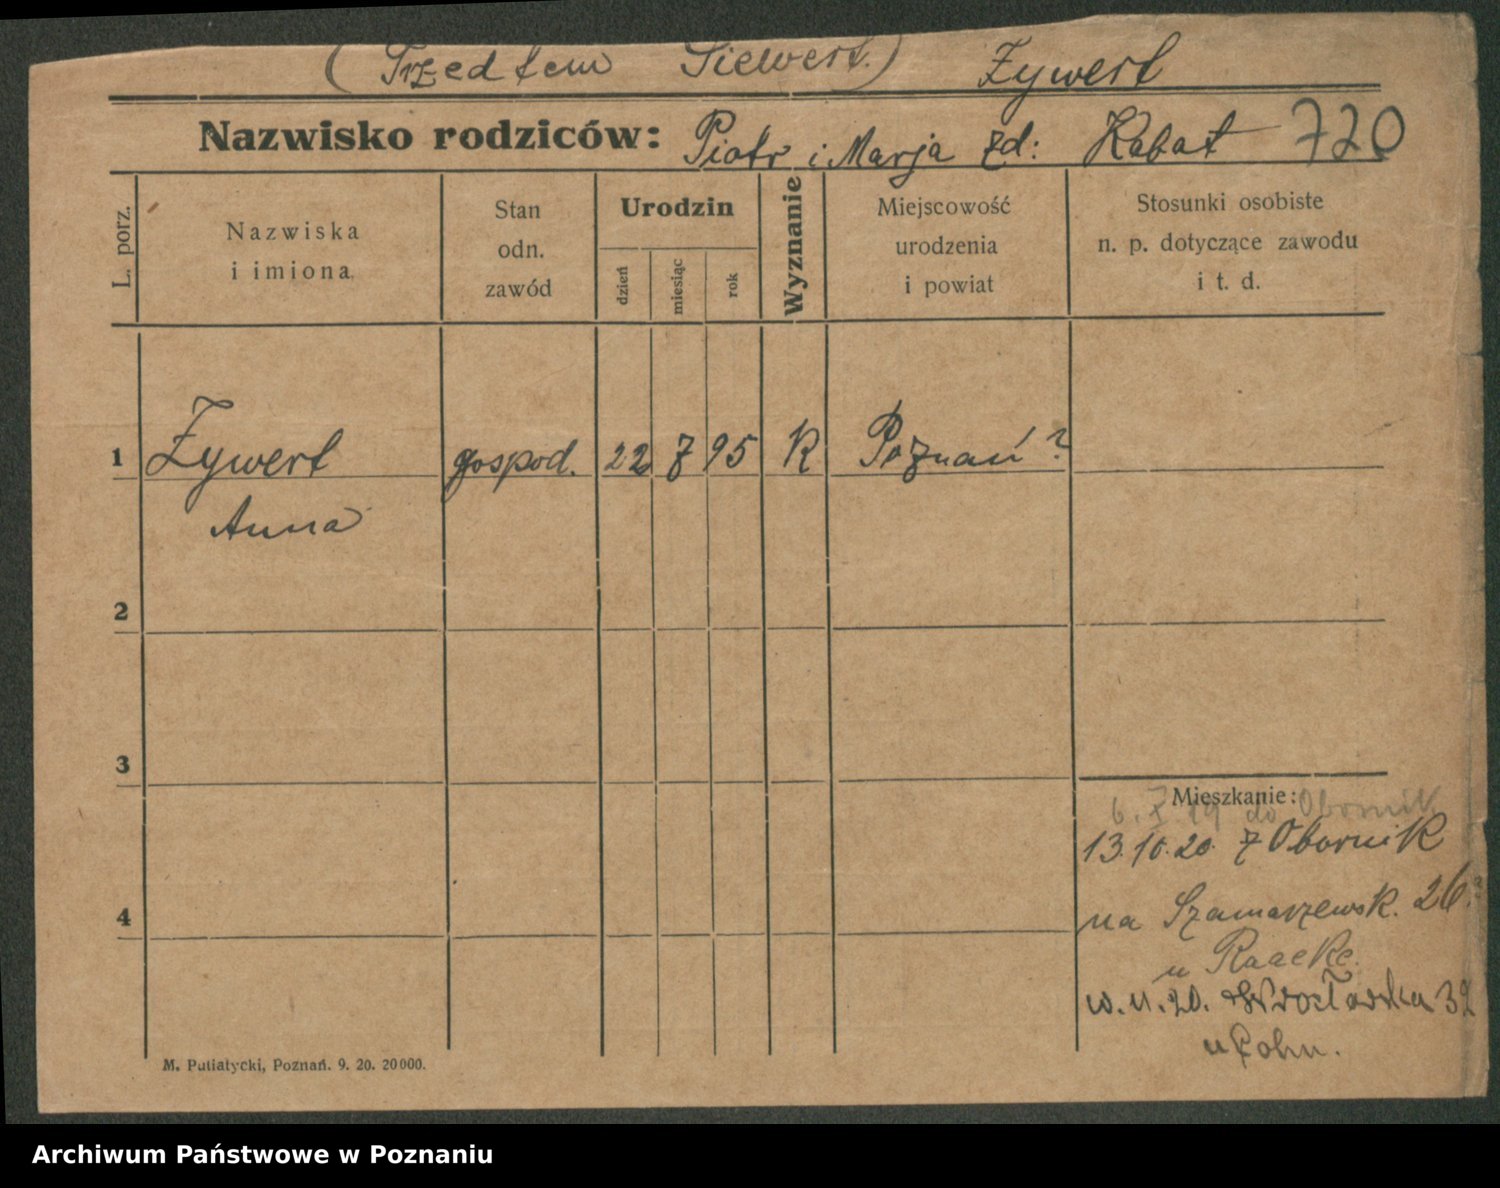 (Przedtem Siewert.) Zywert
Nazwisko rodziców: Piotr i Marja zd: Kabat 720
L. porz.
Nazwiska
i imiona
Stan
odn.
zawód
Urodzin
dzień
miesiąc
rok
Wyznanie
Miejscowość
urodzenia
i powiat
Stosunki osobiste
n. p. dotyczące zawodu
i t. d.
1 Zywert gospod. 22 7 95 K Poznań?
Anna
2
3
Mieszkanie:
do Obornik
13.10.20. z Obornik
4
na Szamarzewsk. 26.
u Raacke.
Wrocławska 32
u Cohn.
M. Putiatycki, Poznań. 9. 20. 20000.
Archiwum Państwowe w Poznaniu